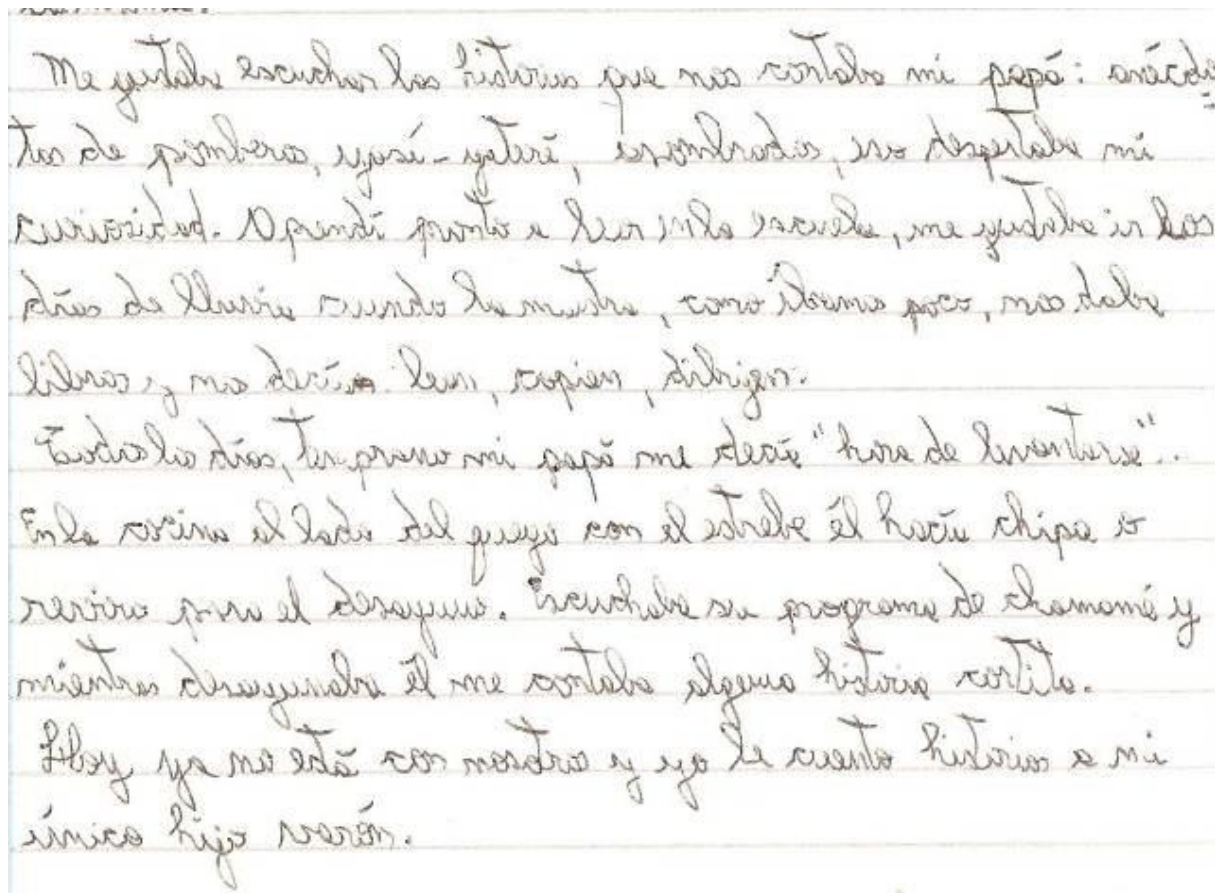 Me gustaba escuchar las historias que nos contaba mi papá: anécdo
tas de pombero, yasí-yateré, asombrados, eso despertaba mi
curiosidad. Aprendí pronto a leer en la escuela, me gustaba ir los
días de lluvia cuando la maestra, como íbamos poco, nos daba
libros y nos decía: lean, copien, dibujen.
Todos los días, temprano mi papá me decía "hora de levantarse"..
En la cocina al lado del fuego con el estrebe él hacía chipa o
reviro para el desayuno. Escuchaba su programa de chamamé y
mientras desayunaba él me contaba alguna historia cortita.
Hoy ya no está con nosotros y yo le cuento historias a mi
único hijo varón.